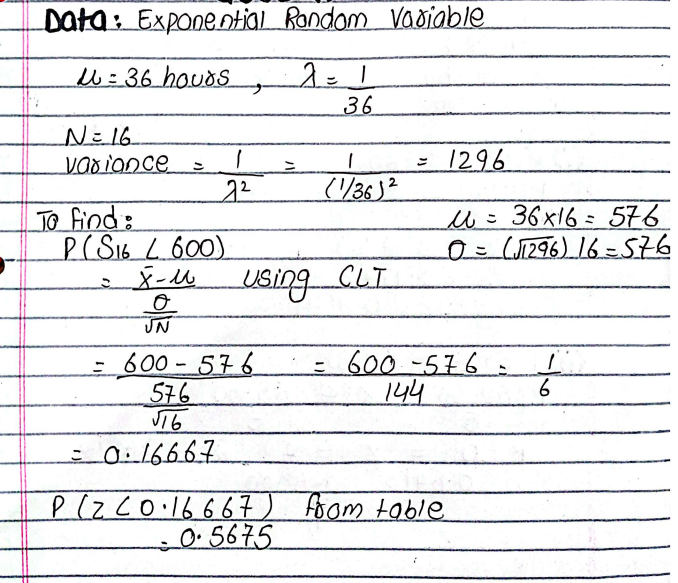 Data: Exponential Random Variable
μ = 36 hours , λ = 1/36
N = 16
variance = 1/λ² = 1/(1/36)² = 1296
To find: μ = 36×16 = 576
P(S16 < 600) σ = (√1296) 16 = 576
= x̄-μ / σ/√N using CLT
= 600 - 576 / 576/√16 = 600 - 576 / 144 = 1/6
= 0.16667
P(z < 0.16667) from table
= 0.5675